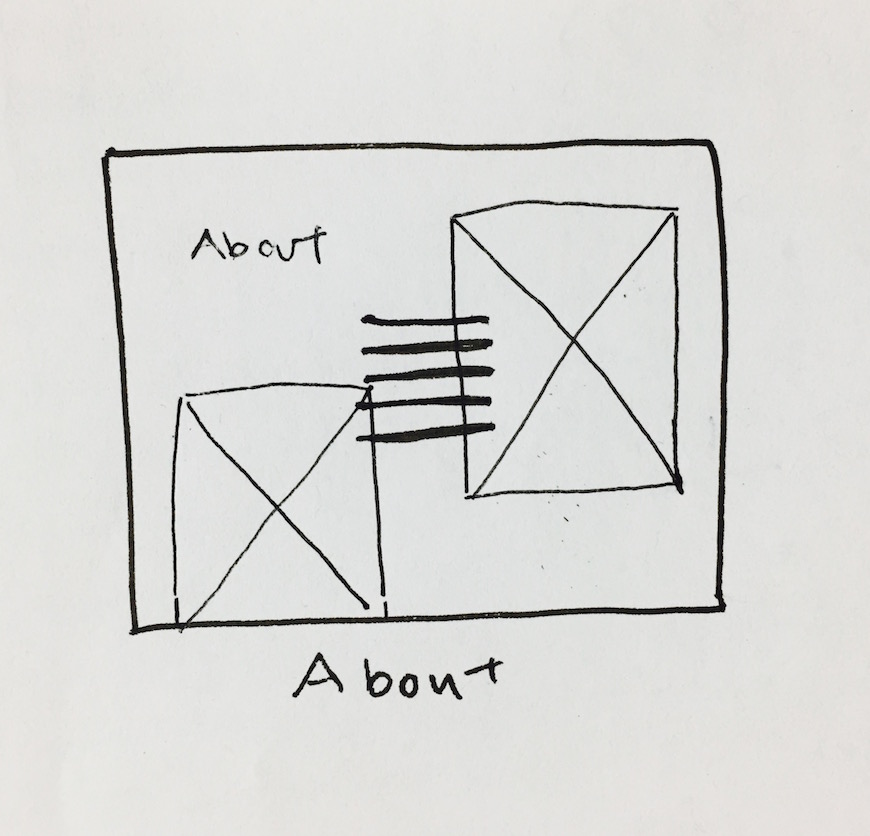 About
About